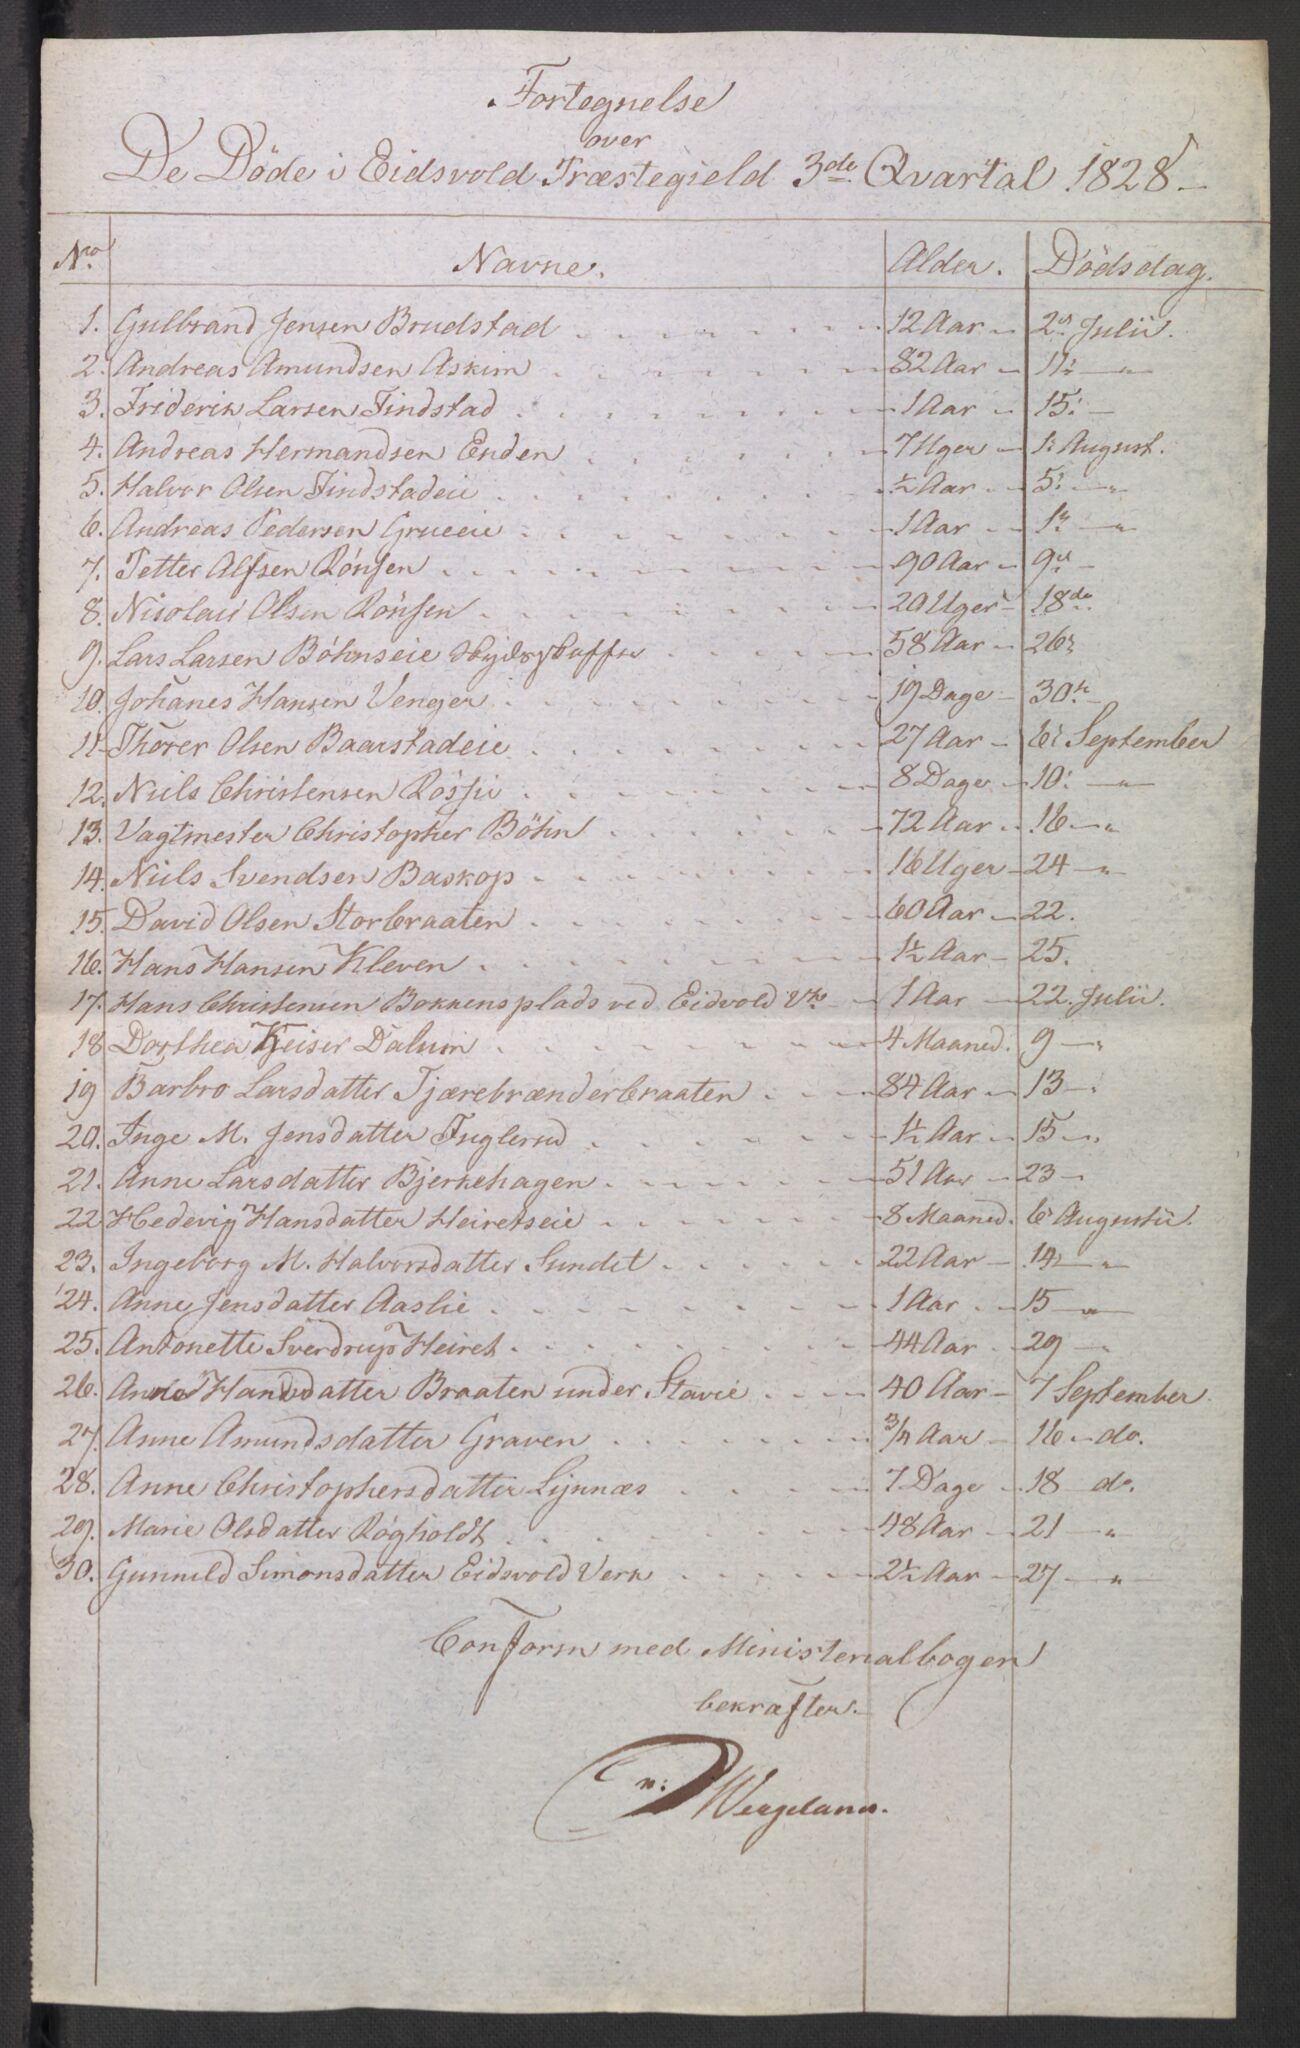 Fortegnelse
over
De Döde i Eidsvold Præstegield 3de Qvartal 1828
Nro Navne. Alder. Dödsdag.
1. Gulbrand Jensen Brudstad 12 Aar 2 Julii.
2. Andreas Amundsen Askim 82 Aar 11 "
3. Friderik Larsen Findstad 1 Aar 15
4. Andreas Hermandsen Enden 7 Uger 1 August.
5. Halvor Olsen Findstadeie ½ Aar 5 "
6. Andreas Pedersen Grueeie 1 Aar "
7. Petter Alfsen Rönsen 90 Aar 9
8. Nicolai Olsen Rönsen 20 Uger 18de
9. Lars Larsen Böhnseie 58 Aar 26
10. Johanes Hansen Venger 19 Dage 30
11. Thorer Olsen Baarstadeie 27 Aar 6 September
12. Niels Christensen 8 Dage 10 "
13. Vagtmester Christopher Böhn 72 Aar 16 "
14. Niels Svendsen Baskop 16 Uger 24 "
15. David Olsen Storbraaten 60 Aar 22.
16. Hans Hansen Kleven 1½ Aar 25.
17. Hans Christensen Bakkens plads ved Eidvold Vk 1 Aar 22. Julii.
18 Dorthea Keiser Dalum 4 Maaned. 9 "
19 Barbro Larsdatter Tjærebrænderbraaten 84 Aar 13
20. Inge M. Jensdatter Fuglerud 1½ Aar 15 "
21. Anne Larsdatter Bjerkehagen 51 Aar 23
22 Hedevig Hansdatter Heiretseie 8 Maaned. 6 Augustii.
23. Ingeborg M. Halvorsdatter Sundet 22 Aar 14 "
24. Anne Jensdatter Aaslie 1 Aar 15 "
25. Antonette Sverdrup Heiret 44 Aar 29 "
26. Hansdatter Braaten under Stavie 40 Aar 7 September
27. Anne Amundsdatter Graven ¾ Aar 16 do.
28. Anne Christophersdatter Lynnæs 7 Dage 18 do.
29. Marie Olsdatter Rögholdt 48 Aar 21 "
30. Gunnild Simonsdatter Eidsvold Verk 2½ Aar 27 "
Conform med Ministerialbogen
bekræfter.
N: Wergeland.